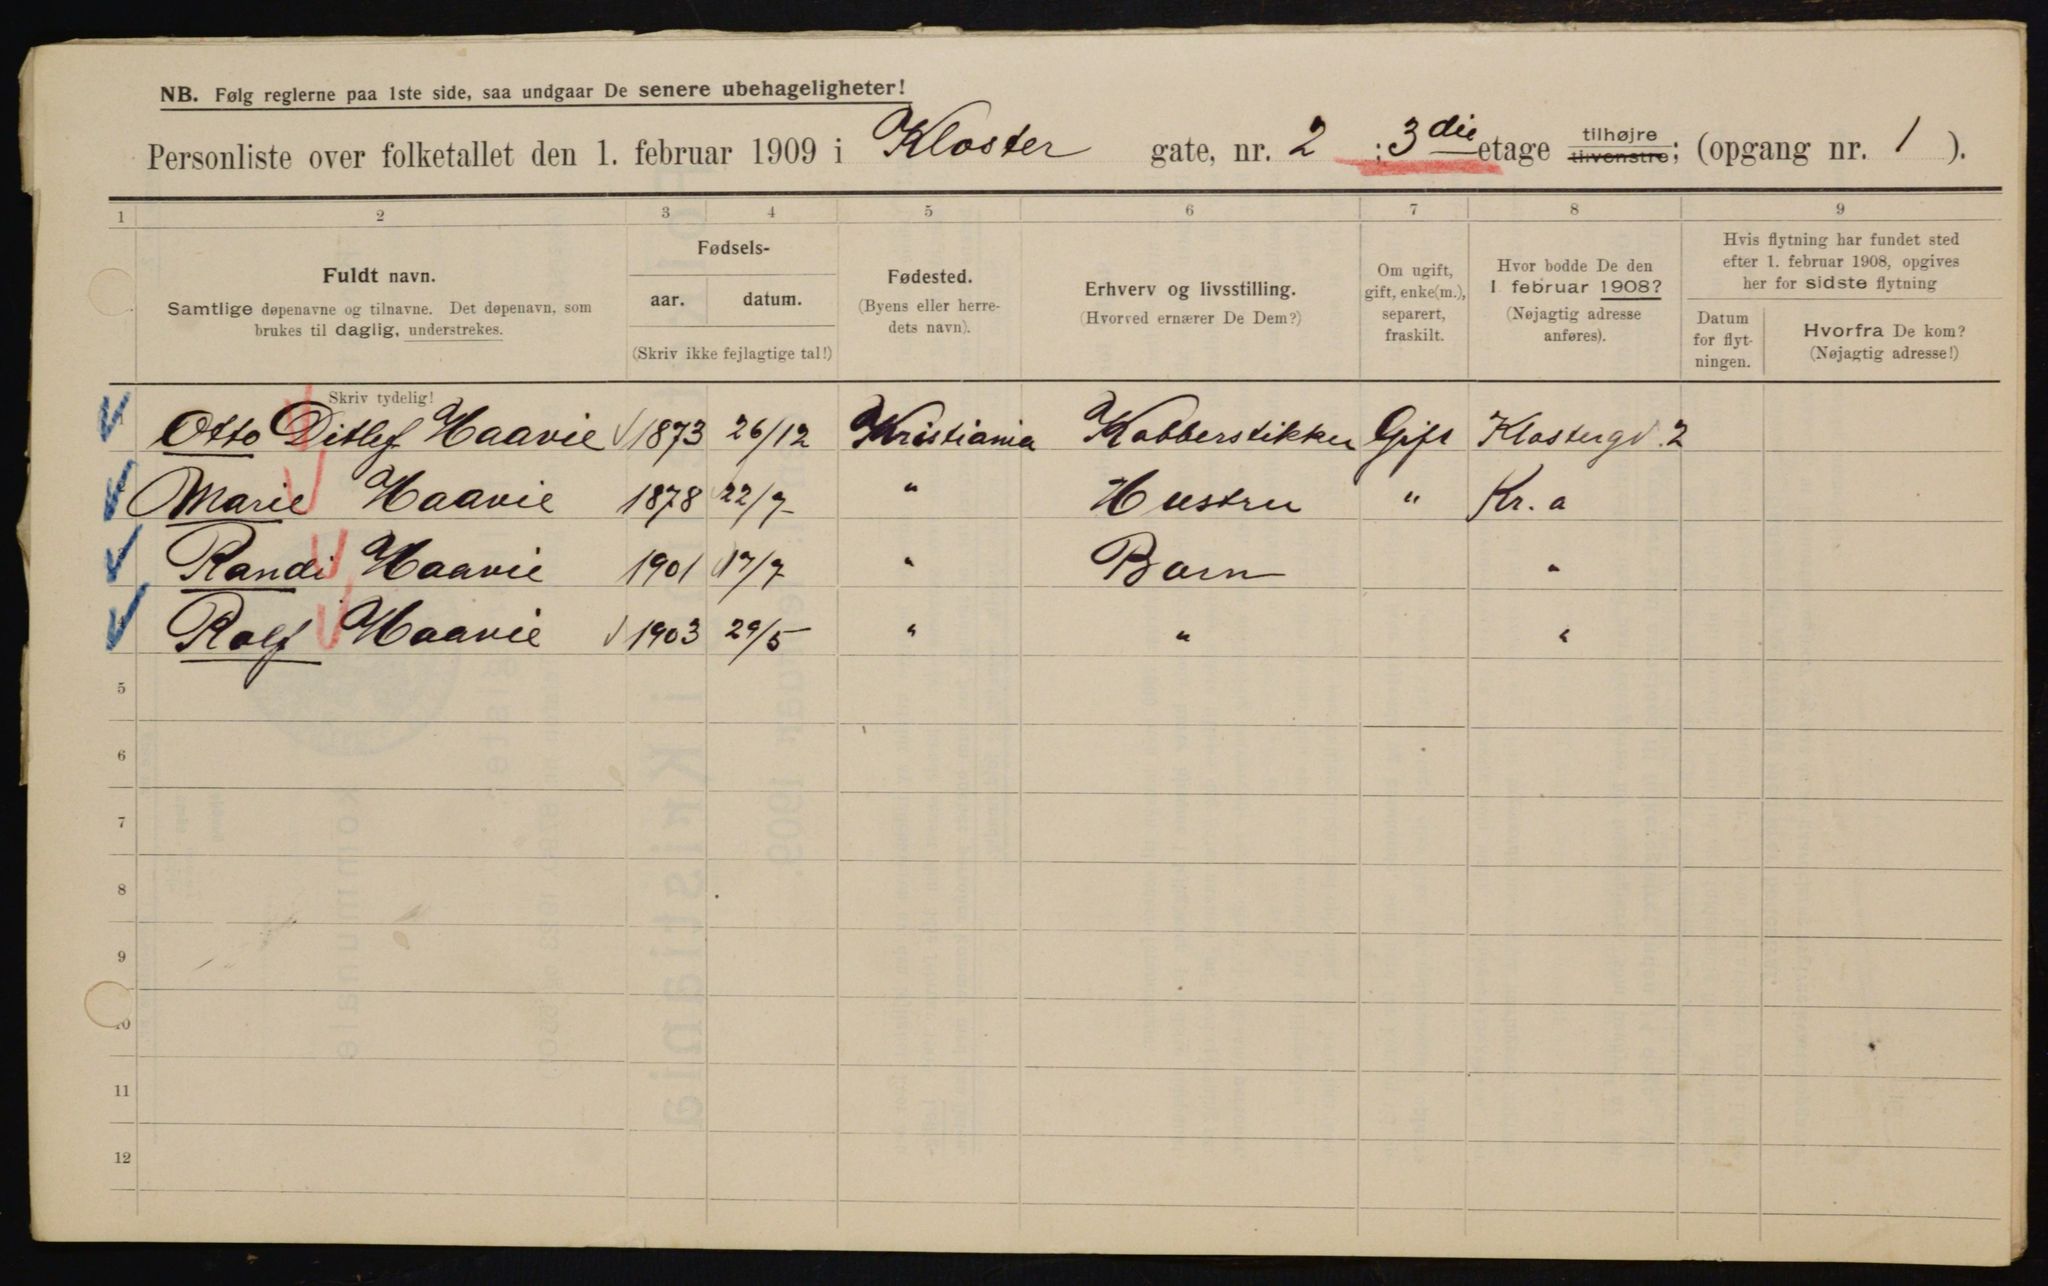 NB. Følg reglerne paa 1ste side, saa undgaar De senere ubehageligheter!
Personliste over folketallet den 1. februar 1909 i Kloster gate, nr. 2 ; 3die etage tilhøjre tilvenstre; (opgang nr. 1 ).
1 2 3 4 5 6 7 8 9
Fuldt navn.
Samtlige døpenavne og tilnavne. Det døpenavn, som
brukes til daglig, understrekes.
Fødsels-
aar. datum.
(Skriv ikke fejlagtige tal!)
Fødested.
(Byens eller herre-
dets navn).
Erhverv og livsstilling.
(Hvorved ernærer De Dem?)
Om ugift,
gift, enke(m.),
separert,
fraskilt.
Hvor bodde De den
1 februar 1908?
(Nøjagtig adresse
anføres).
Hvis flytning har fundet sted
efter 1. februar 1908, opgives
her for sidste flytning
Datum
for flyt-
ningen.
Hvorfra De kom?
(Nøjagtig adresse!)
Skriv tydelig!
Otto Ditlef Haavie 1873 26/12 Kristiania Kobberstikker Gift Klostergd. 2
Marie Haavie 1878 22/7 " Hustru " Kr. a
Randi Haavie 1901 17/7 " Barn "
Rolf Haavie 1903 29/5 " " "
5
6
7
8
9
10
11
12